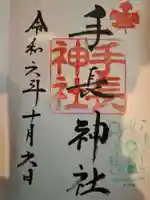 手長神社
手長
神社
令和六年十月六日